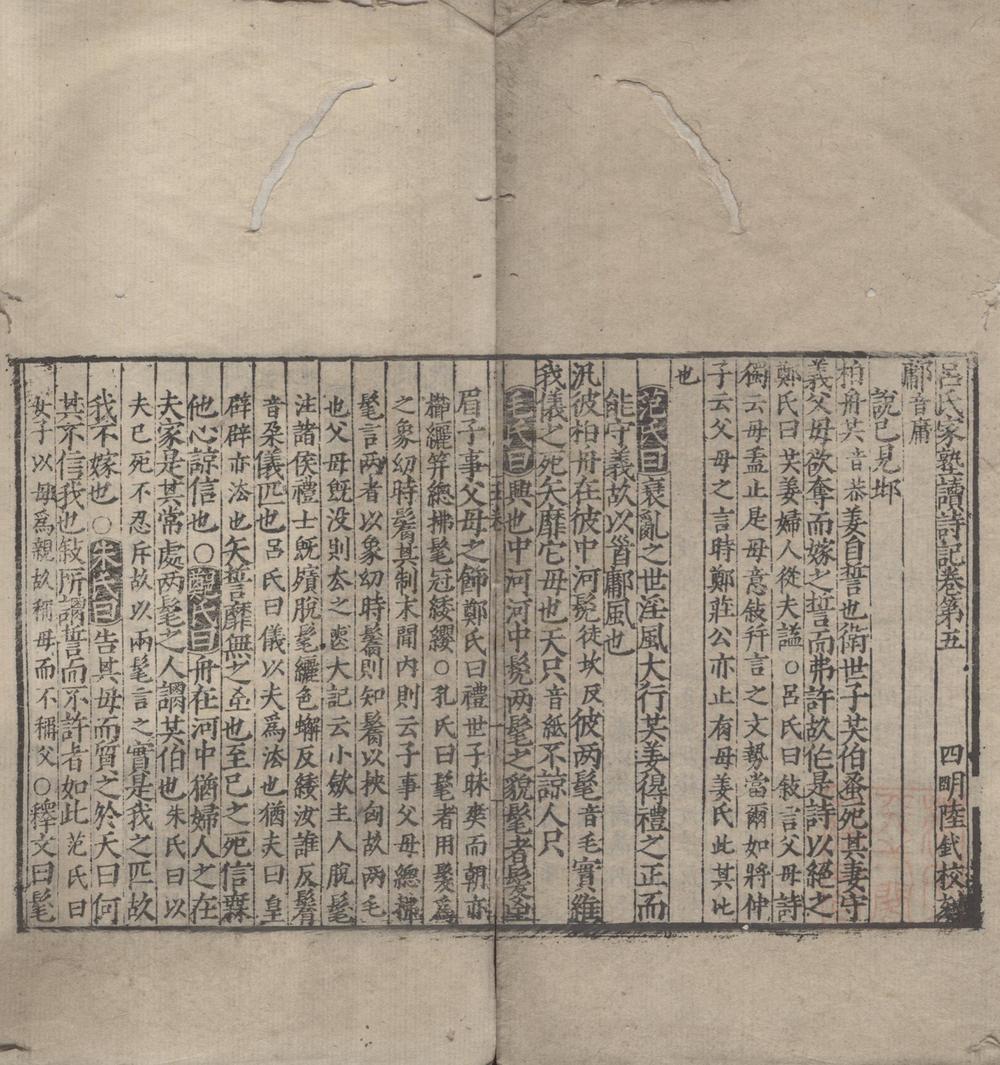 呂氏家塾讀詩記卷第五 四明陸釴校刻
鄘音庸
說已見邶
柏舟共音恭姜自誓也衛世子共伯蚤死其妻守
義父母欲奪而嫁之誓而弗許故作是詩以絕之
鄭氏曰共姜婦人從夫謚○呂氏曰敍言父母詩
獨云母盖止是母意敍并言之文勢當爾如將仲
子云父母之言時鄭莊公亦止有母姜氏此其比
也
范氏曰衰亂之世淫風大行共姜得禮之正而
能守義故以首鄘風也
汎彼柏舟在彼中河髧徒坎反彼两髦音毛實維
我儀之死矢靡它母也天只音紙不諒人只
毛氏曰興也中河河中髧两髦之貌髦者髮至
眉子事父母之飾鄭氏曰禮世子昧爽而朝亦
櫛纚笄總拂髦冠緌纓○孔氏曰髦者用髮爲
之象幼時鬌其制未聞内則云子事父母總拂
髦言两者以象幼時鬌則知鬌以挾囟故两毛
也父母旣没則去之喪大記云小斂主人脫髦
注諸侯禮士旣殯脫髦纚色蠏反緌汝誰反鬌
音朶儀匹也呂氏曰儀以夫爲法也猶夫曰皇
辟辟亦法也矢誓靡無之至也至己之死信無
他心諒信也○鄭氏曰舟在河中猶婦人之在
夫家是其常處两髦之人謂共伯也朱氏曰以
夫已死不忍斥故以兩髦言之實是我之匹故
我不嫁也○朱氏曰告其母而質之於天曰何
其不信我也敍所謂誓而不許者如此范氏曰
女子以母爲親故稱母而不稱父○釋文曰髦